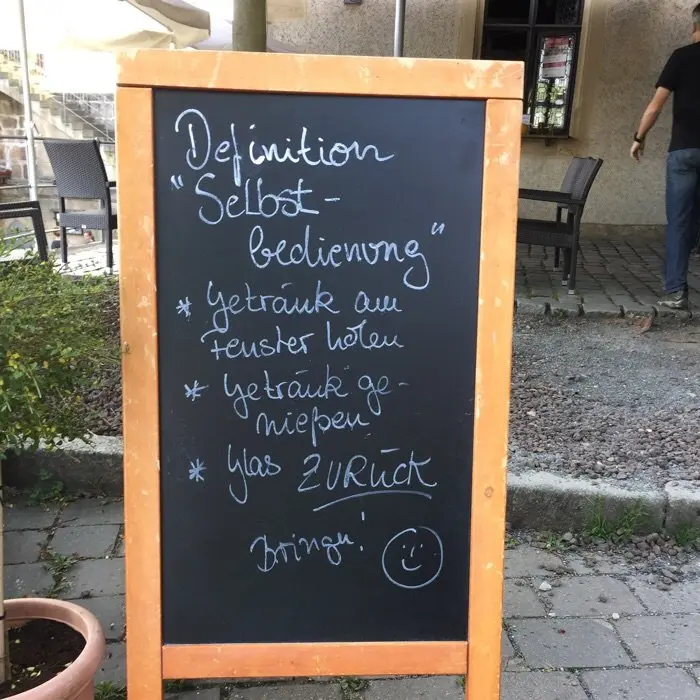 Definition
"Selbst-
bedienung"
* Getränk am
Fenster holen
* Getränk ge-
nießen
* Glas ZURÜCK
Bringen!